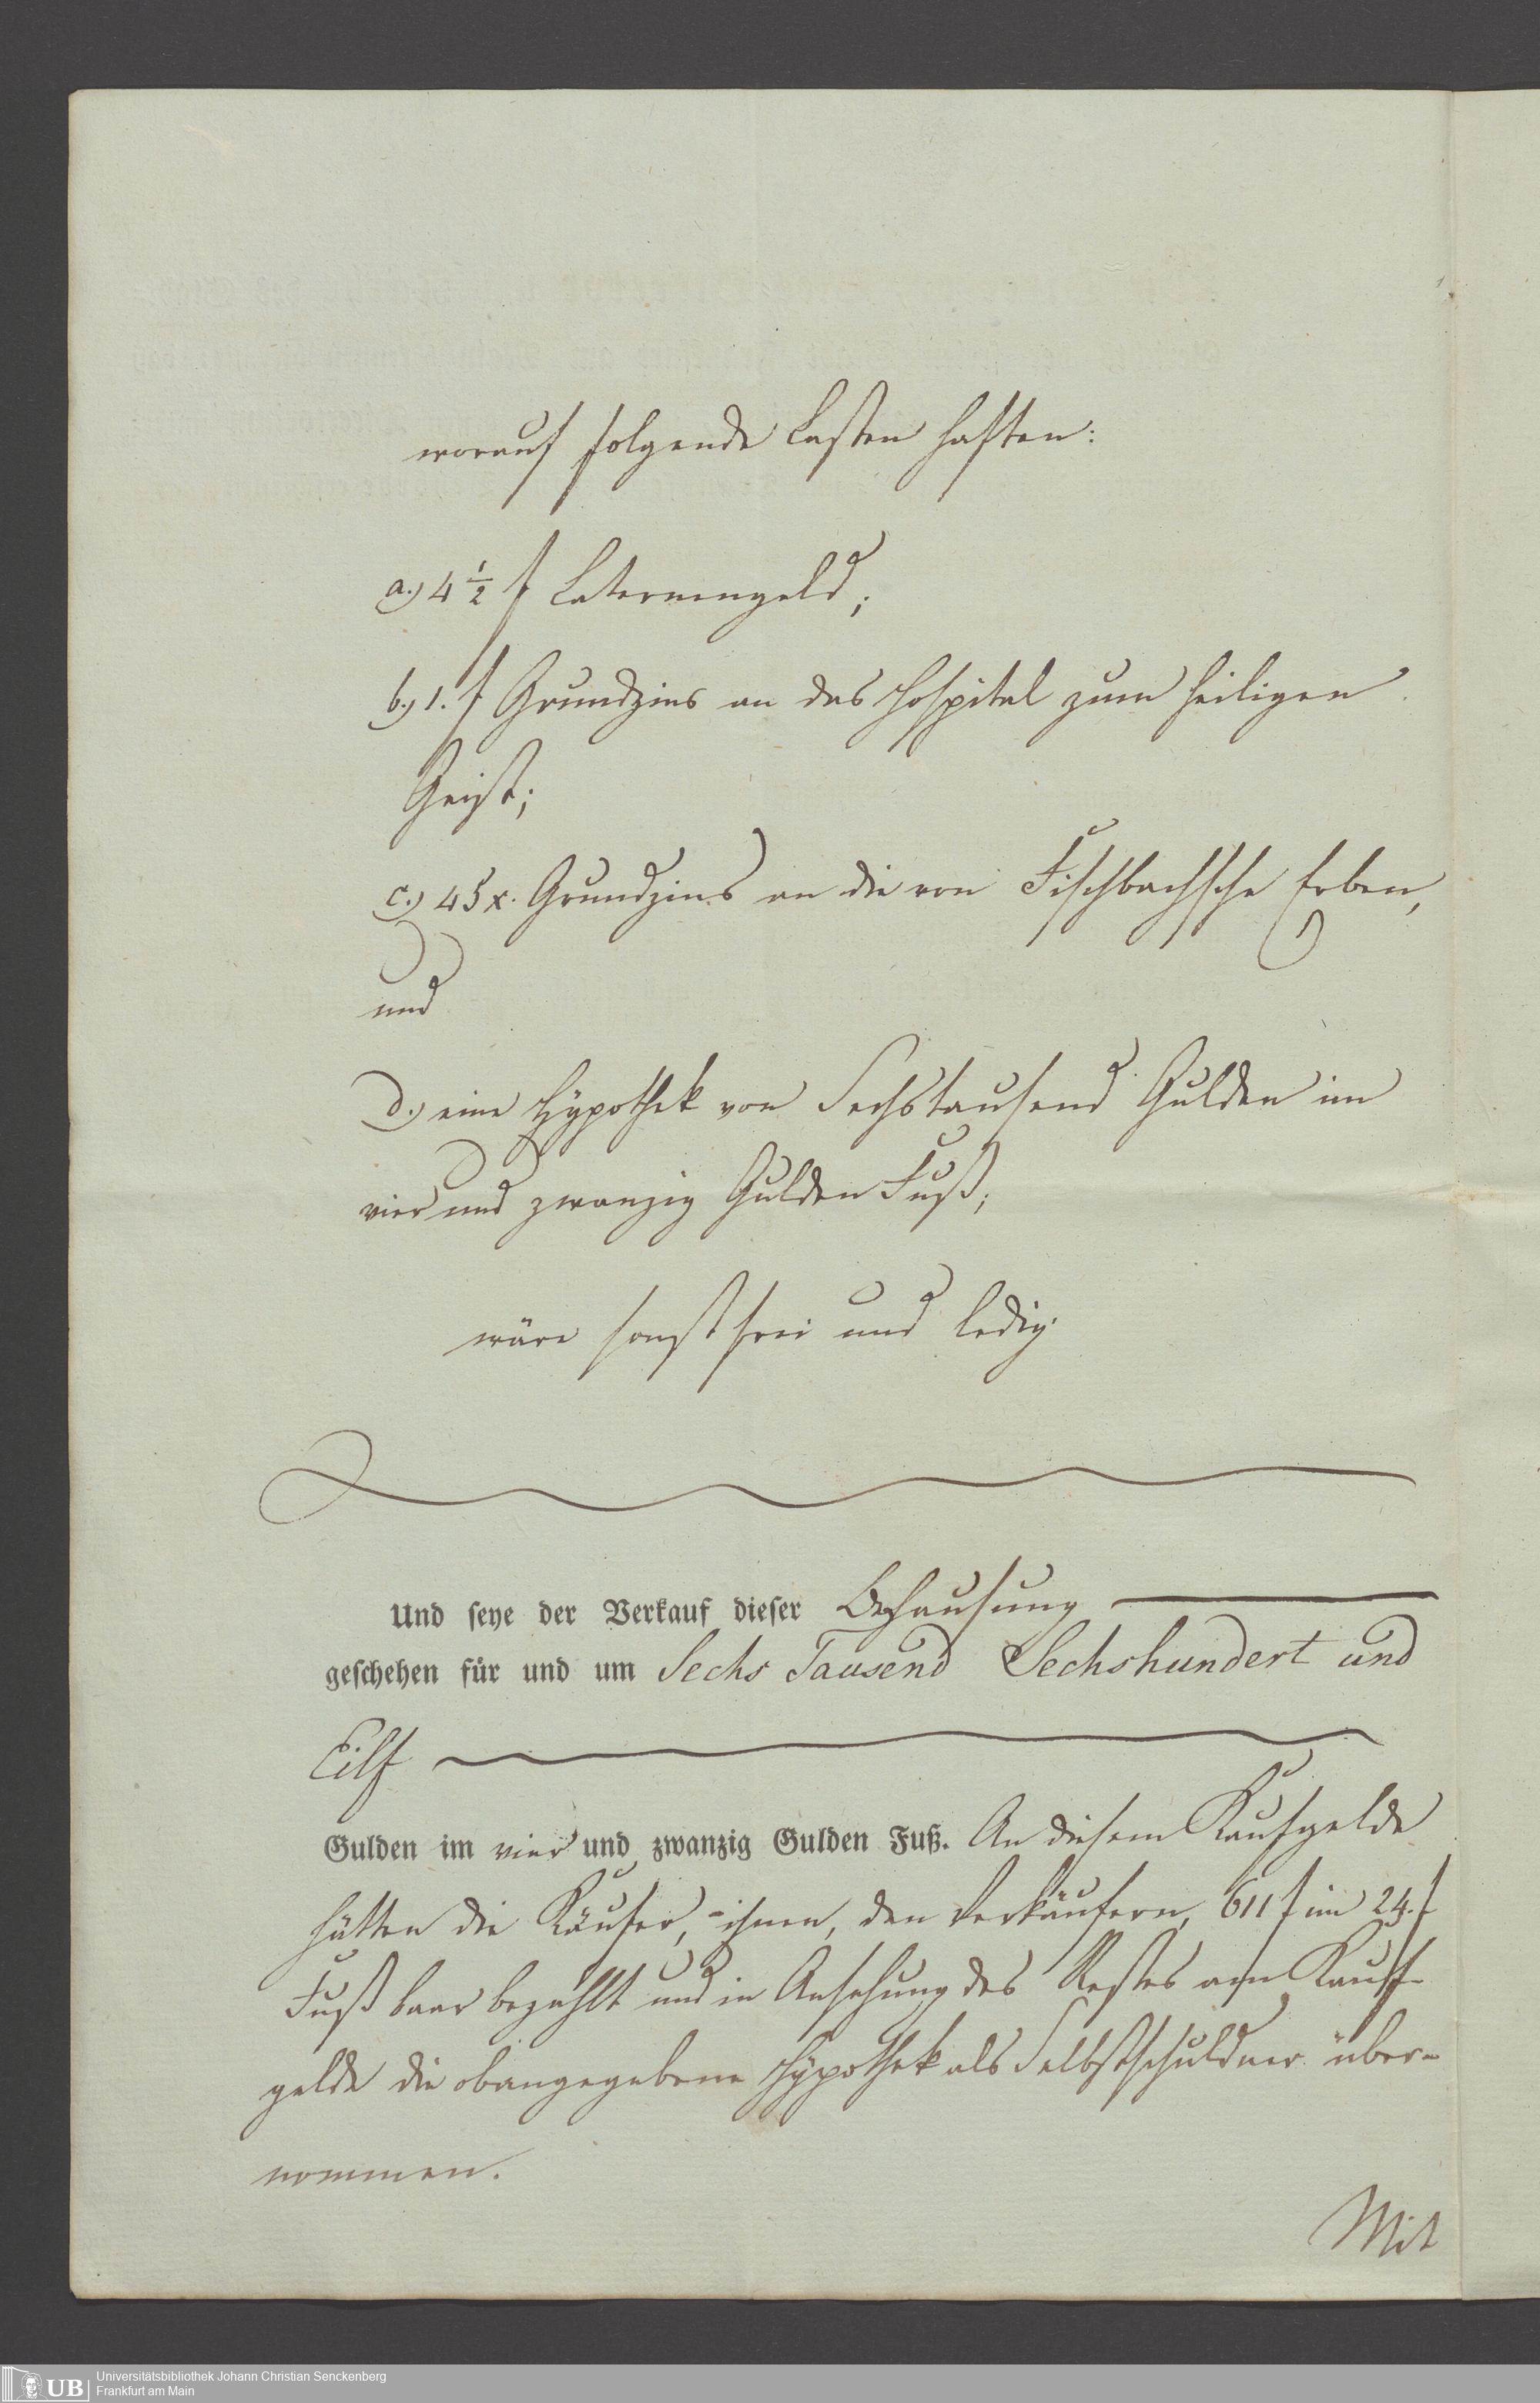 worauf folgende Lasten haften:
a.) 4 1/2 f Laternengeld;
b.) 1. f Grundzins an das Hospital zum heiligen
Geist;
c.) 45 x. Grundzins an die von Fischbachsche Erben,
und
d.) eine Hypothek von Sechstausend Gulden im
vier und zwanzig Gulden Fuß;
wäre sonst frei und ledig.
Und seye der Verkauf dieser Behausung
geschehen für und um Sechs Tausend Sechshundert und
Eilf
Gulden im vier und zwanzig Gulden Fuß. An diesem Kaufgelde
hätten die Käufer, ihnen, den Verkäufern, 611 f im 24. f
Fuß baar bezahlt und in Ansehung des Restes am Kauf-
gelde die obangegebene Hypothek als Selbstschuldner über-
nommen.
Mit
UB Universitätsbibliothek Johann Christian Senckenberg
Frankfurt am Main